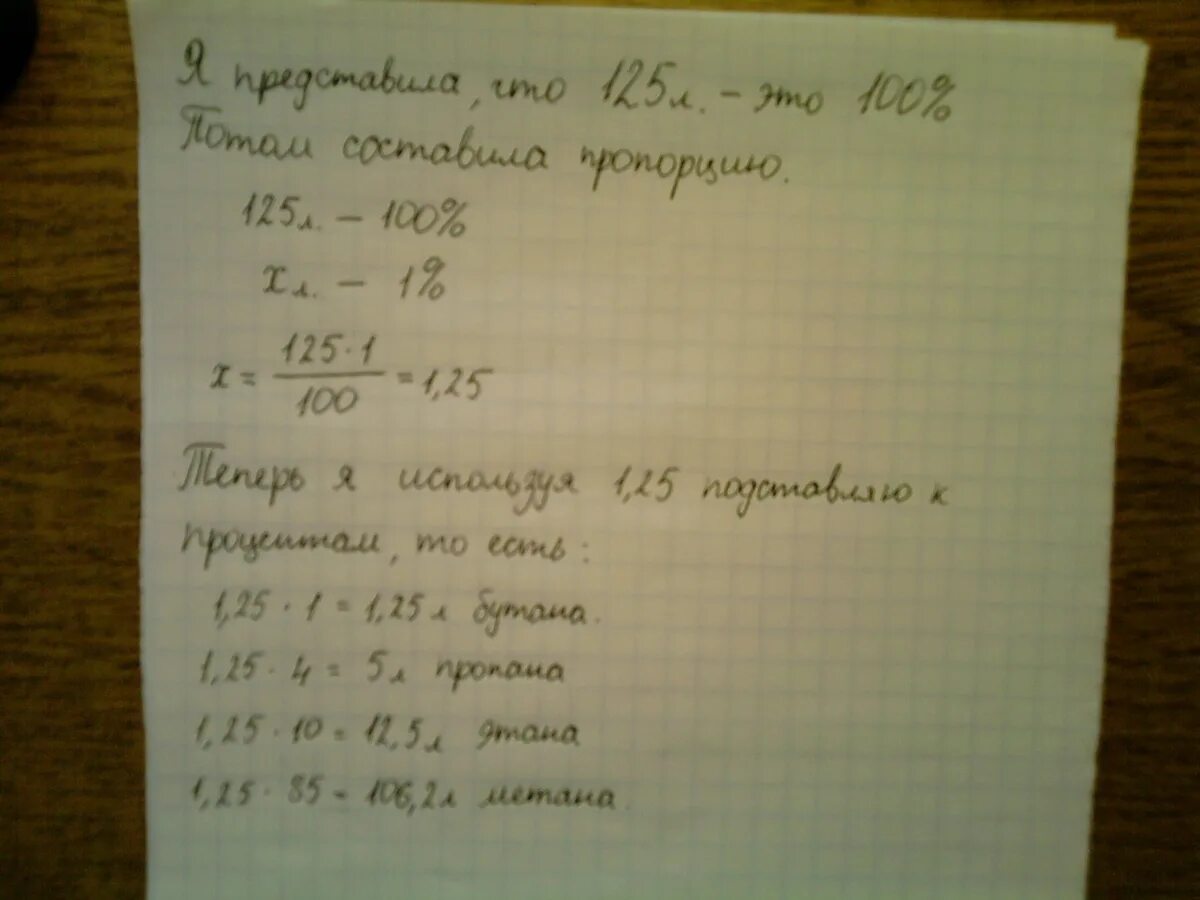 Я представила, что 125л. – это 100%
Потом составила пропорцию.
125л. – 100%
x л. – 1%
x = 125·1 / 100 = 1,25
Теперь я используя 1,25 подставляю к
процентам, то есть:
1,25 · 1 = 1,25 л бутана.
1,25 · 4 = 5л пропана
1,25 · 10 = 12,5л этана
1,25 · 85 = 106,2л метана.